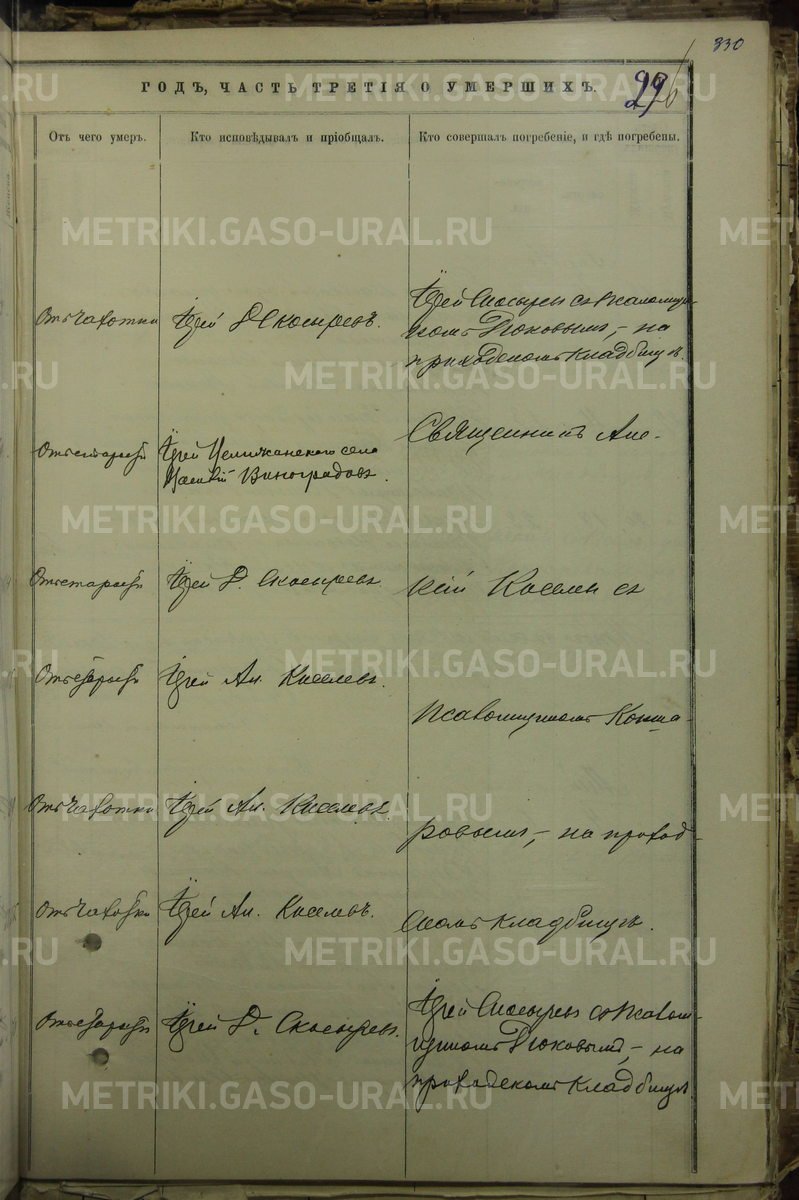 330
ГОДЪ, ЧАСТЬ ТРЕТІЯ О УМЕРШИХЪ.
Отъ чего умеръ.
Кто исповѣдывалъ и пріобщалъ.
Кто совершалъ погребеніе, и гдѣ погребены.
Отъ чахотки
Іерей Д Скосыревъ.
Іерей Скосыревъ съ псаломщи-
комъ Дюковымъ, – на
приходскомъ кладбищѣ.
Отъ старости
Іерей
села
Виноградовъ.
Священникъ Але-
Отъ старости
Іерей Д. Скосыревъ.
ксій Киселевъ съ
Отъ старости
Іерей Ал. Киселевъ.
псаломщикомъ Конша-
Отъ чахотки
Іерей Ал. Киселевъ.
ровымъ, – на приход-
Отъ чахотки
Іерей Ал. Киселевъ.
скомъ кладбищѣ.
Отъ старости
Іерей Д. Скосыревъ.
Іерей Скосыревъ съ псалом-
щикомъ Дюковымъ, – на
приходскомъ кладбищѣ.
METRIKI.GASO-URAL.RU